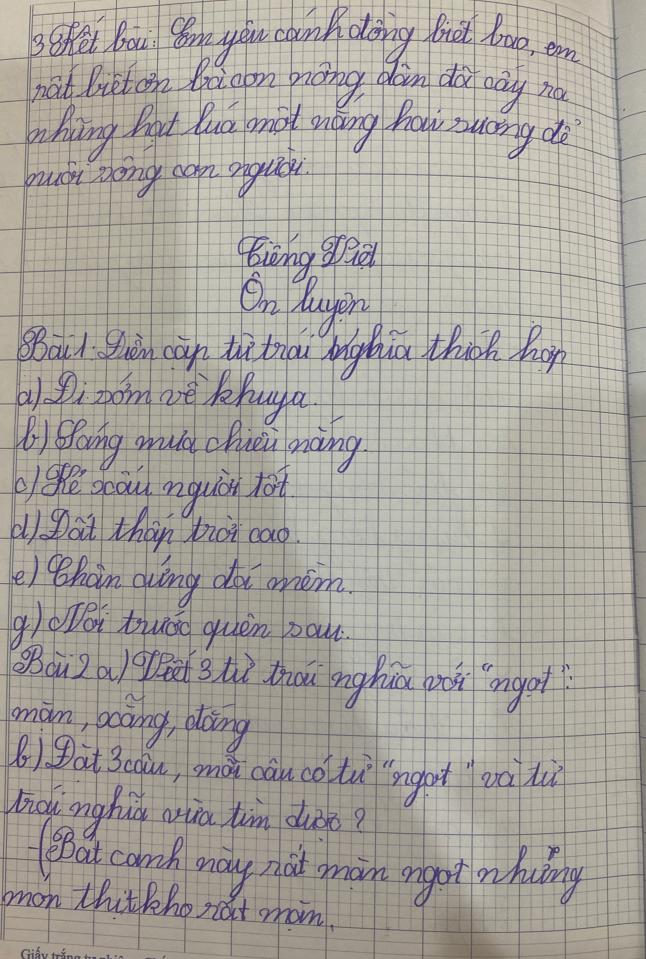 3 Kết bài: Em yêu cánh đồng biết bao, em
rất biết ơn bà con nông dân đã cấy ra
những hạt luá một nắng hai sương để
nuôi sống con người.
Tiếng Việt
Ôn luyện
Bài 1. Điền cặp từ trái nghĩa thích hợp
a) Đi sớm về khuya.
b) Sáng mưa chiều nắng.
c) Kẻ xấu người tốt.
d) Đất thấp trời cao.
e) Chân cứng đá mềm.
g) Nói trước quên sau.
Bài 2 a) Viết 3 từ trái nghĩa với "ngọt":
mặn, xẵng, đắng
b) Đặt 3 câu, mỗi câu có từ "ngọt" và từ
trái nghĩa vừa tìm được?
- (Bát canh này rất mặn ngọt nhưng
món thịt kho rất mặn.
Giấy trắng tự nhiên